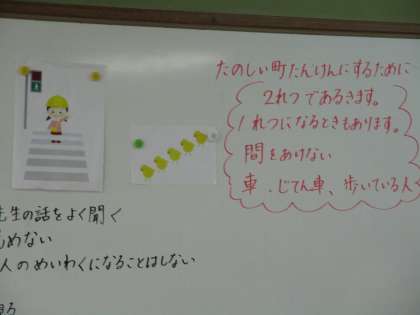 たのしい町たんけんにするために
2れつであるきます。
1れつになるときもあります。
間をあけない
車、じてん車、歩いている人
先生の話をよく聞く
めない
人のめいわくになることはしない